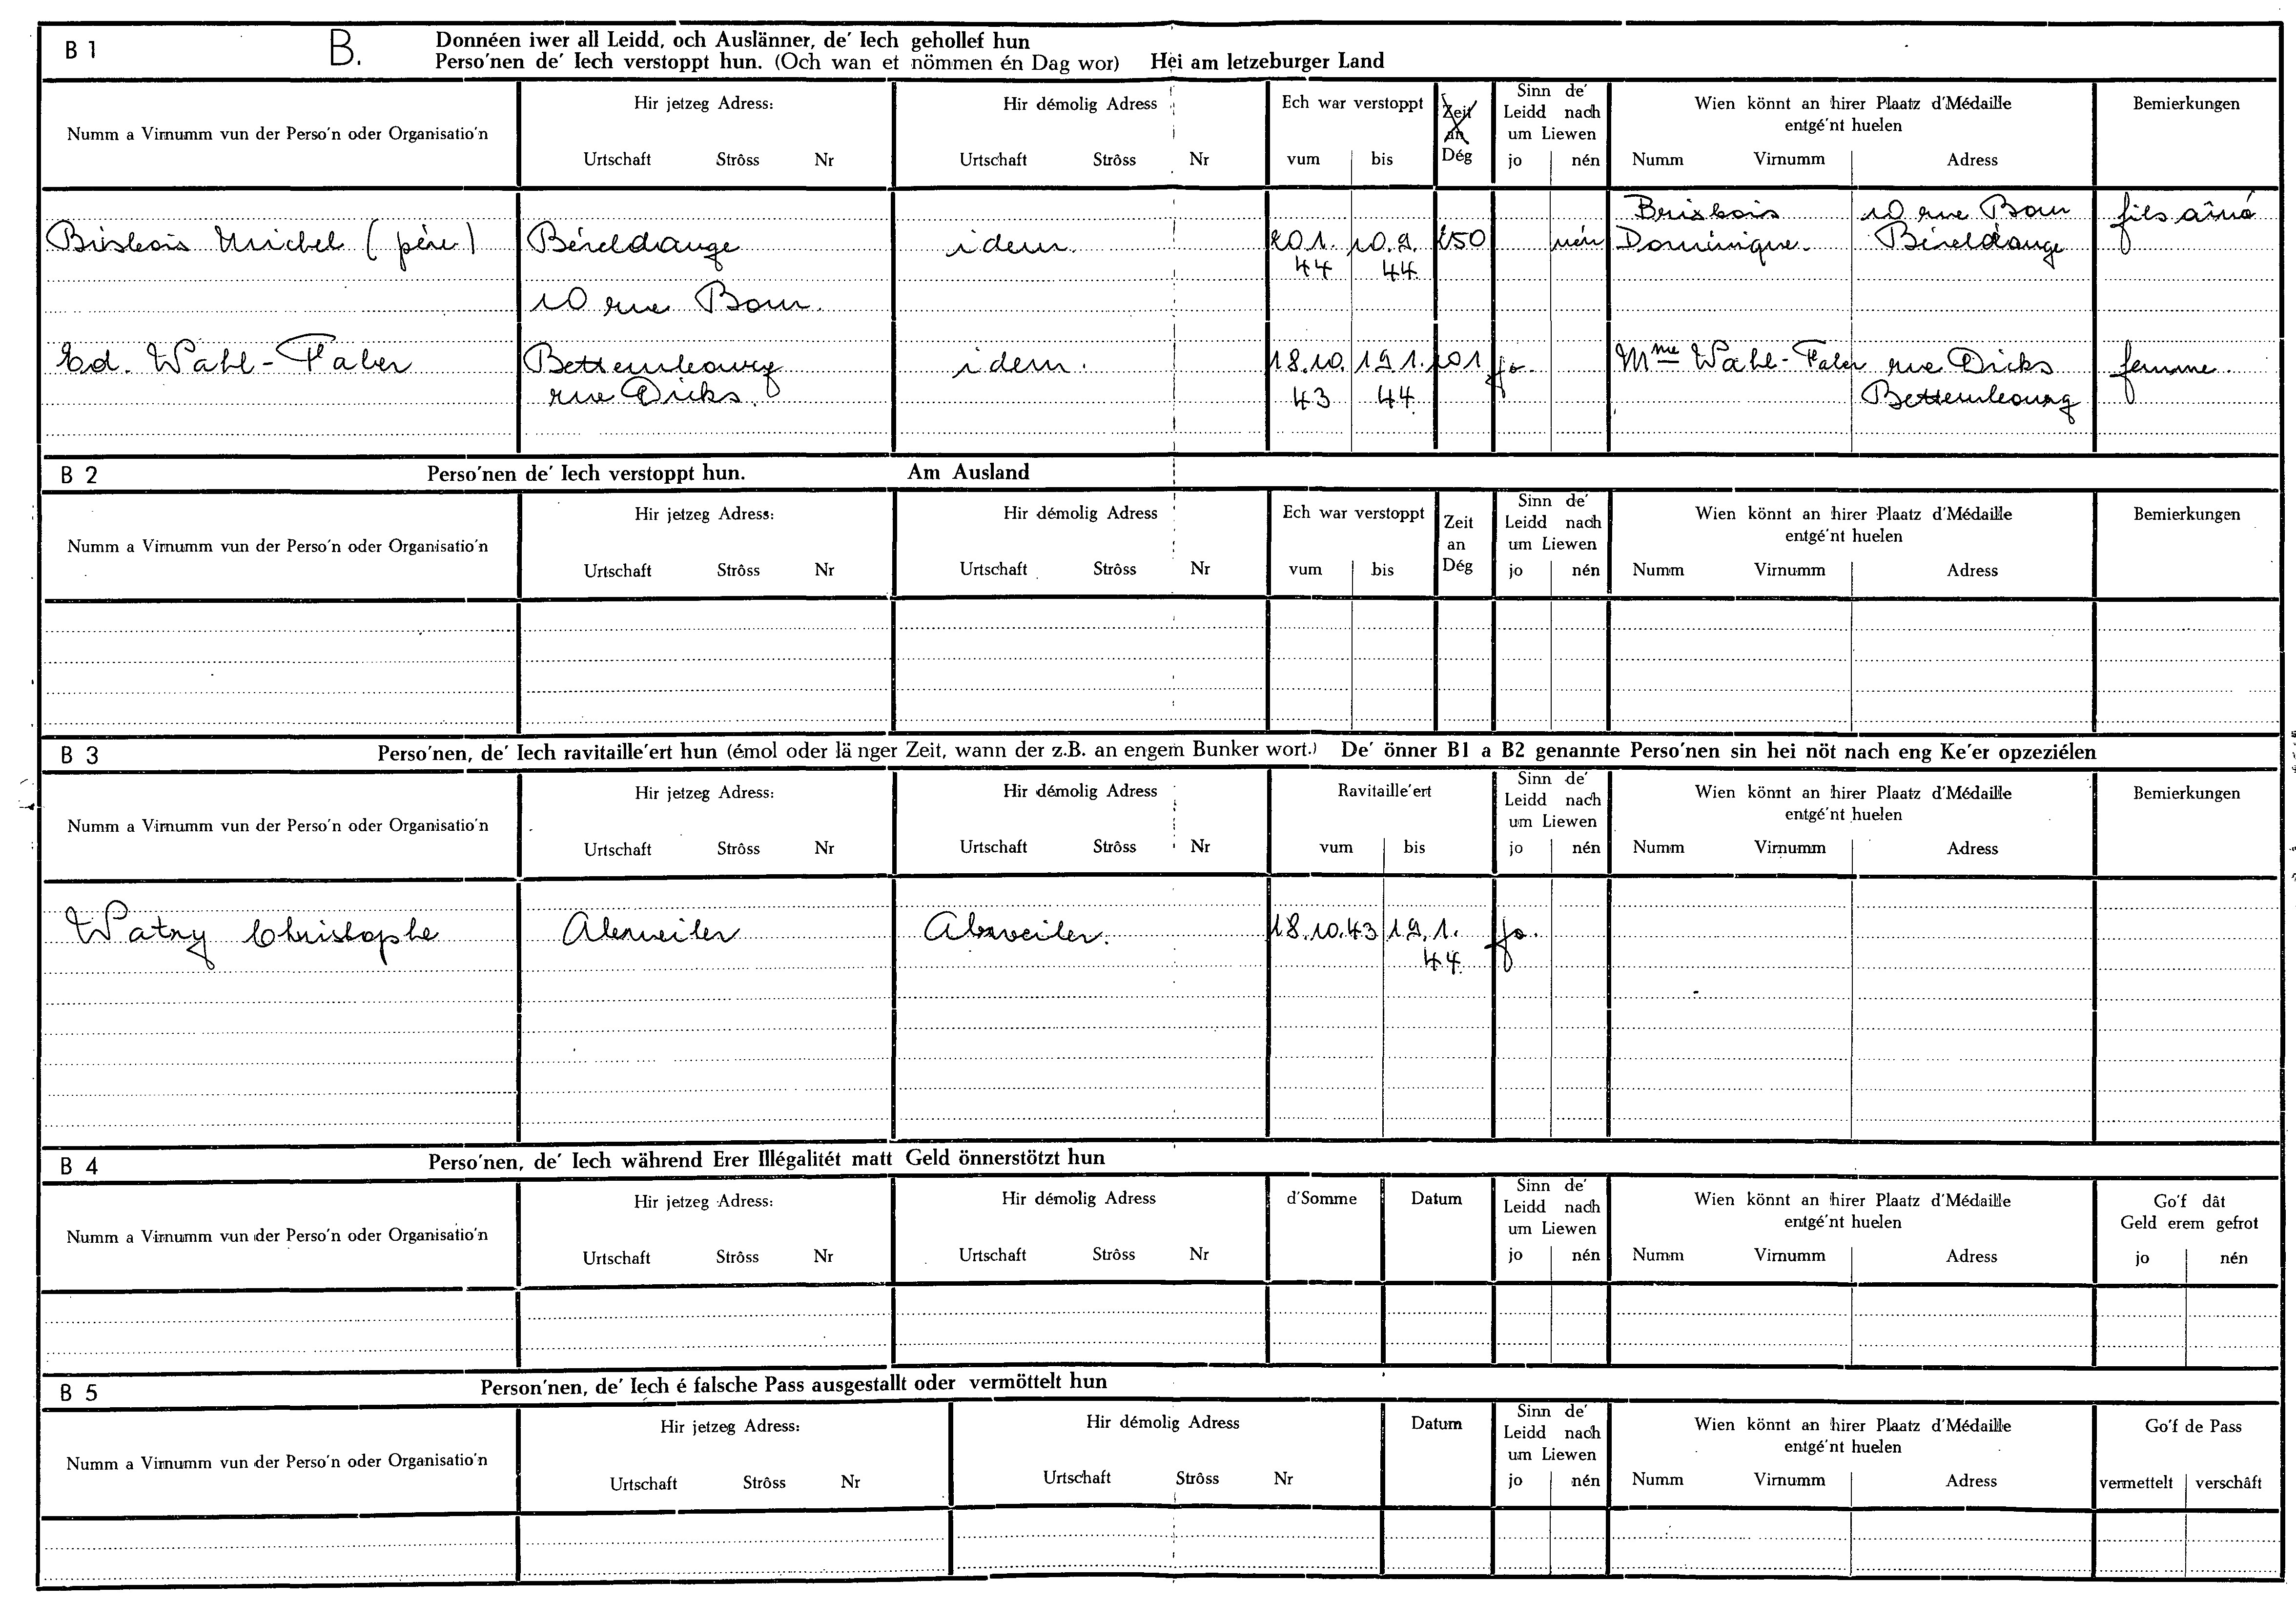 B 1 B. Donnéen iwer all Leidd, och Auslänner, de' Iech gehollef hun
Perso'nen de' Iech verstoppt hun. (Och wan et nömmen én Dag wor) Hei am letzeburger Land
Numm a Virnumm vun der Perso'n oder Organisatio'n
Hir jetzeg Adress:
Urtschaft Strôss Nr
Hir démolig Adress
Urtschaft Strôss Nr
Ech war verstoppt
vum bis
Zeit
an
Dég
Sinn de'
Leidd nach
um Liewen
jo nén
Wien könnt an hirer Plaatz d'Médaille
entgé'nt huelen
Numm Virnumm Adress
Bemierkungen
Brixbois 10 rue Bour fils aîné
Brisbois Michel (père) Béreldange idem. 20 1. 10.9. 250 nén Dominique. Béreldange
44 44
10 rue Bour.
Ed. Wahl-Faber Bettembourg idem. 18.10. 19 1. 101 jo. Mme Wahl-Faber rue Dicks femme.
rue Dicks. 43 44 Bettembourg
B 2 Perso'nen de' Iech verstoppt hun. Am Ausland
Numm a Virnumm vun der Perso'n oder Organisatio'n
Hir jetzeg Adress:
Urtschaft Strôss Nr
Hir démolig Adress
Urtschaft Strôss Nr
Ech war verstoppt
vum bis
Zeit
an
Dég
Sinn de'
Leidd nach
um Liewen
jo nén
Wien könnt an hirer Plaatz d'Médaille
entgé'nt huelen
Numm Virnumm Adress
Bemierkungen
B 3 Perso'nen, de' Iech ravitaille'ert hun (émol oder länger Zeit, wann der z.B. an engem Bunker wort.) De' önner B1 a B2 genannte Perso'nen sin hei nöt nach eng Ke'er opzeziélen
Numm a Virnumm vun der Perso'n oder Organisatio'n
Hir jetzeg Adress:
Urtschaft Strôss Nr
Hir démolig Adress
Urtschaft Strôss Nr
Ravitaille'ert
vum bis
Sinn de'
Leidd nach
um Liewen
jo nén
Wien könnt an hirer Plaatz d'Médaille
entgé'nt huelen
Numm Virnumm Adress
Bemierkungen
Watry Christophe Abweiler Abweiler. 18.10.43 19.1. jo.
44
B 4 Perso'nen, de' Iech während Erer Illégalitét matt Geld önnerstötzt hun
Numm a Virnumm vun der Perso'n oder Organisatio'n
Hir jetzeg Adress:
Urtschaft Strôss Nr
Hir démolig Adress
Urtschaft Strôss Nr
d'Somme
Datum
Sinn de'
Leidd nach
um Liewen
jo nén
Wien könnt an hirer Plaatz d'Médaille
entgé'nt huelen
Numm Virnumm Adress
Go'f dât
Geld erem gefrot
jo nén
B 5 Person'nen, de' Iech é falsche Pass ausgestallt oder vermöttelt hun
Numm a Virnumm vun der Perso'n oder Organisatio'n
Hir jetzeg Adress:
Urtschaft Strôss Nr
Hir démolig Adress
Urtschaft Strôss Nr
Datum
Sinn de'
Leidd nach
um Liewen
jo nén
Wien könnt an hirer Plaatz d'Médaille
entgé'nt huelen
Numm Virnumm Adress
Go'f de Pass
vermettelt verschâft